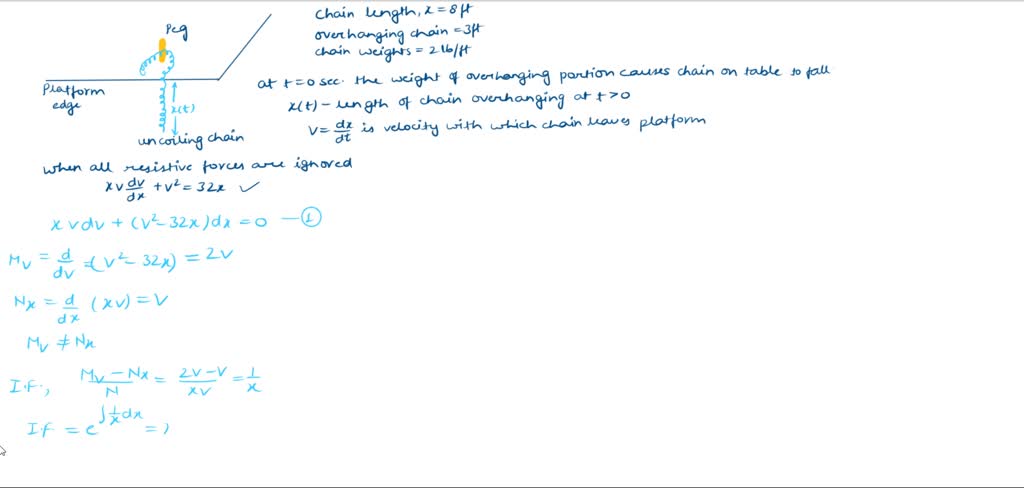 Peg
Platform
edge
x(t)
uncoiling chain
chain length, x = 8ft
overhanging chain = 3ft
chain weights = 2 lb/ft
at t=0 sec. the weight of overhanging portion causes chain on table to fall
x(t) - length of chain overhanging at t>0
V = dx/dt is velocity with which chain leaves platform
when all resistive forces are ignored
xv dv/dx + v² = 32x ✓
x v dv + (v² - 32x) dx = 0 — ①
Mv = d/dv =(v² - 32x) = 2v
Nx = d/dx (xv) = v
Mv ≠ Nx
I.F., Mv - Nx/N = 2v - v/xv = 1/x
I.F = e^∫1/x dx = )